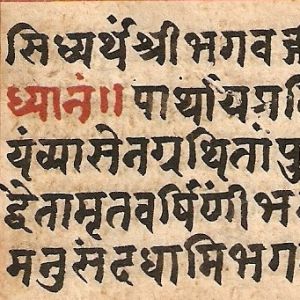 सिध्यर्थं श्रीभगवद्गी
ध्यानं॥ पार्थायप्रति
यंव्यासेनग्रथितांपु
द्वैतामृतवर्षिणींभ
मनुसंदधामिभग